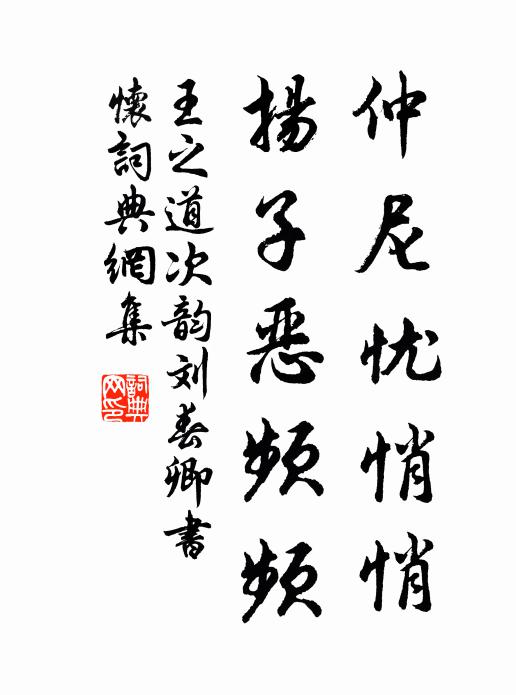 仲尼忧悄悄
揚子恶频频
王之道次韵刘春卿書
懷詞典網集
詞典网印